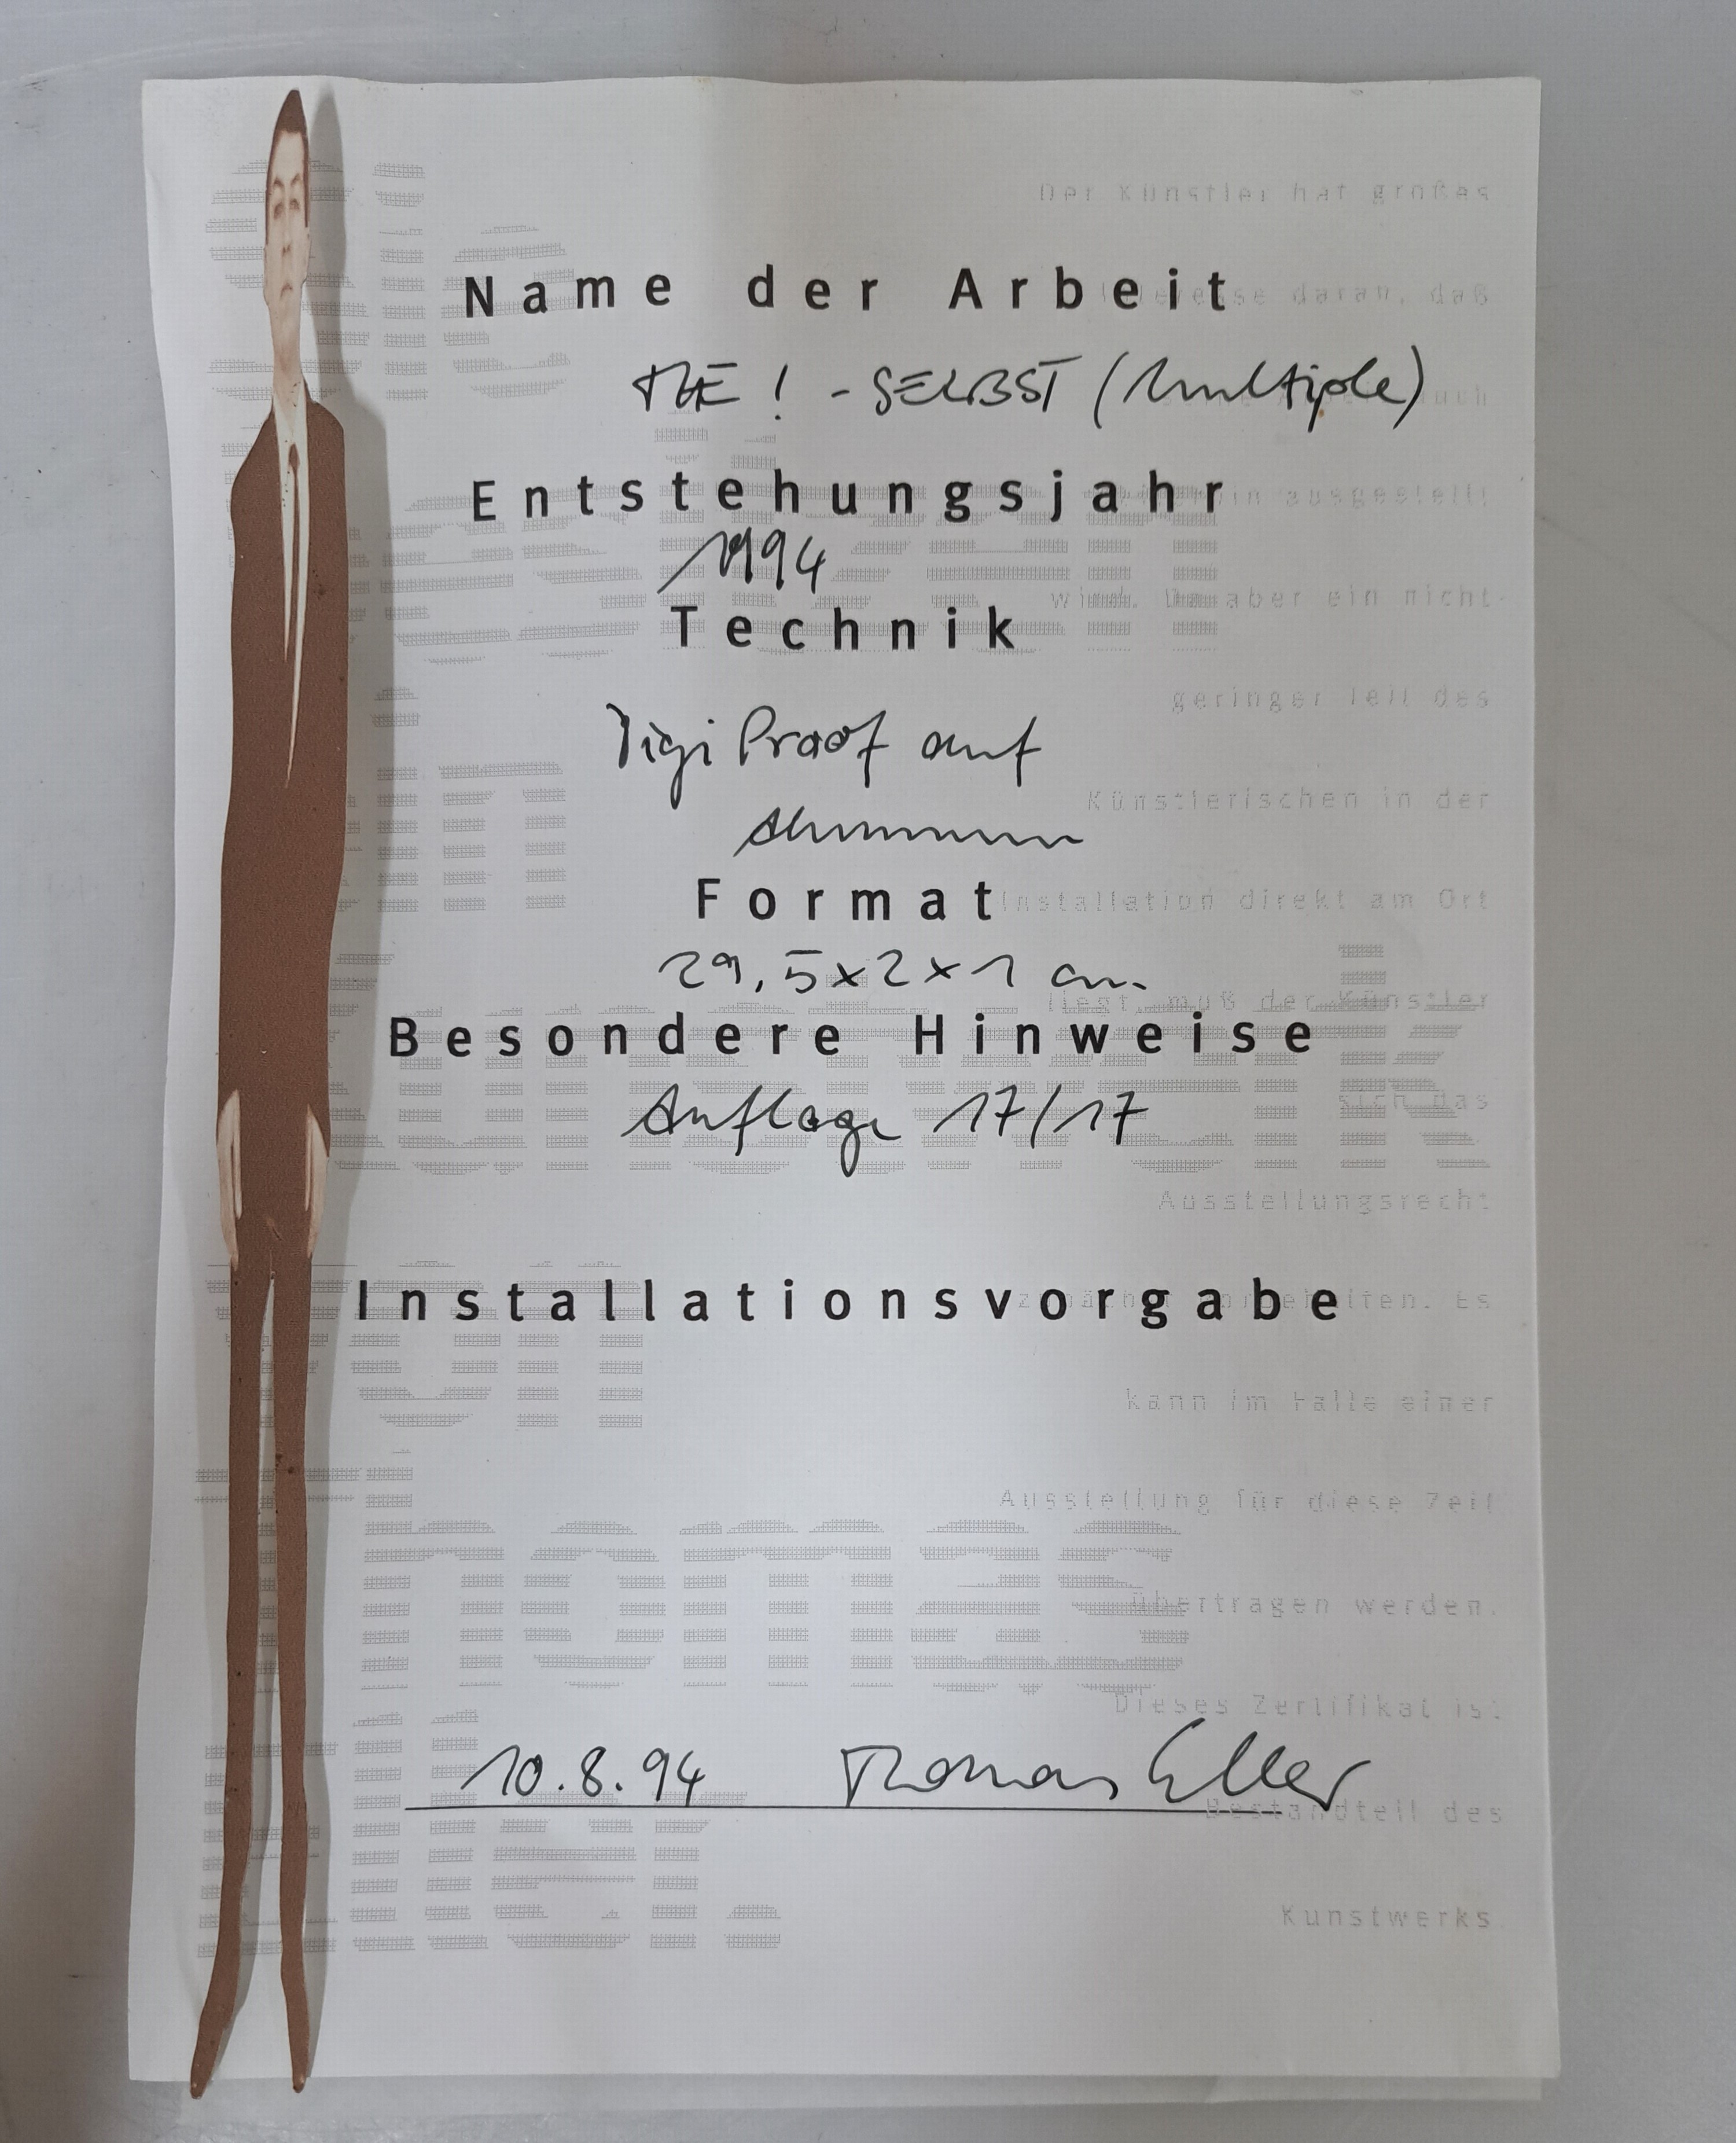 Der Künstler hat großes
Name der Arbeit
Interesse daran, daß
THE ! - SELBST (Multiple)
auch
Entstehungsjahr
ausgestellt
1994
wird. Da aber ein nicht
Technik
geringer Teil des
DigiProof auf
Künstlerischen in der
Aluminium
Format
Installation direkt am Ort
29,5 x 2 x 1 cm.
liegt, muß der Künstler
Besondere Hinweise
sich das
Auflage 17/17
Ausstellungsrecht
Installationsvorgabe
zunächst vorbehalten. Es
kann im Falle einer
Ausstellung für diese Zeit
thomas
übertragen werden.
Dieses Zertifikat ist
10.8.94 Thomas Eller
Bestandteil des
eller.
Kunstwerks